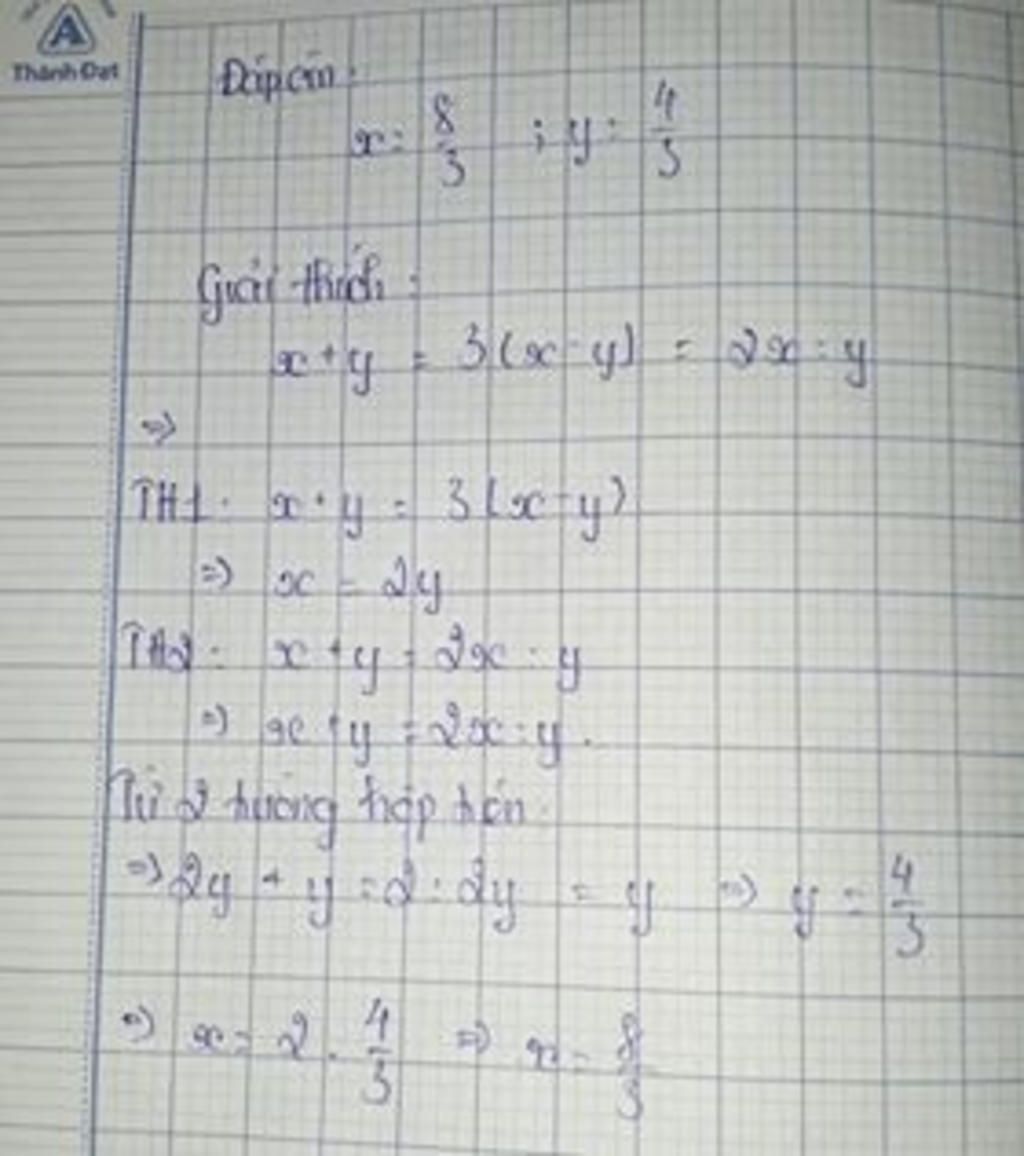 Thành Đạt
Đáp án:
x = 8/3 ; y = 4/3
Giải thích:
x + y = 3(x - y) = 2x : y
=>
TH1: x + y = 3(x - y)
=> x = 2y
TH2: x + y = 2x : y
=> x + y = 2x : y.
Từ 2 trường hợp trên
=> 2y + y = 2 . 2y = y => y = 4/3
=> x = 2 . 4/3 => x = 8/3